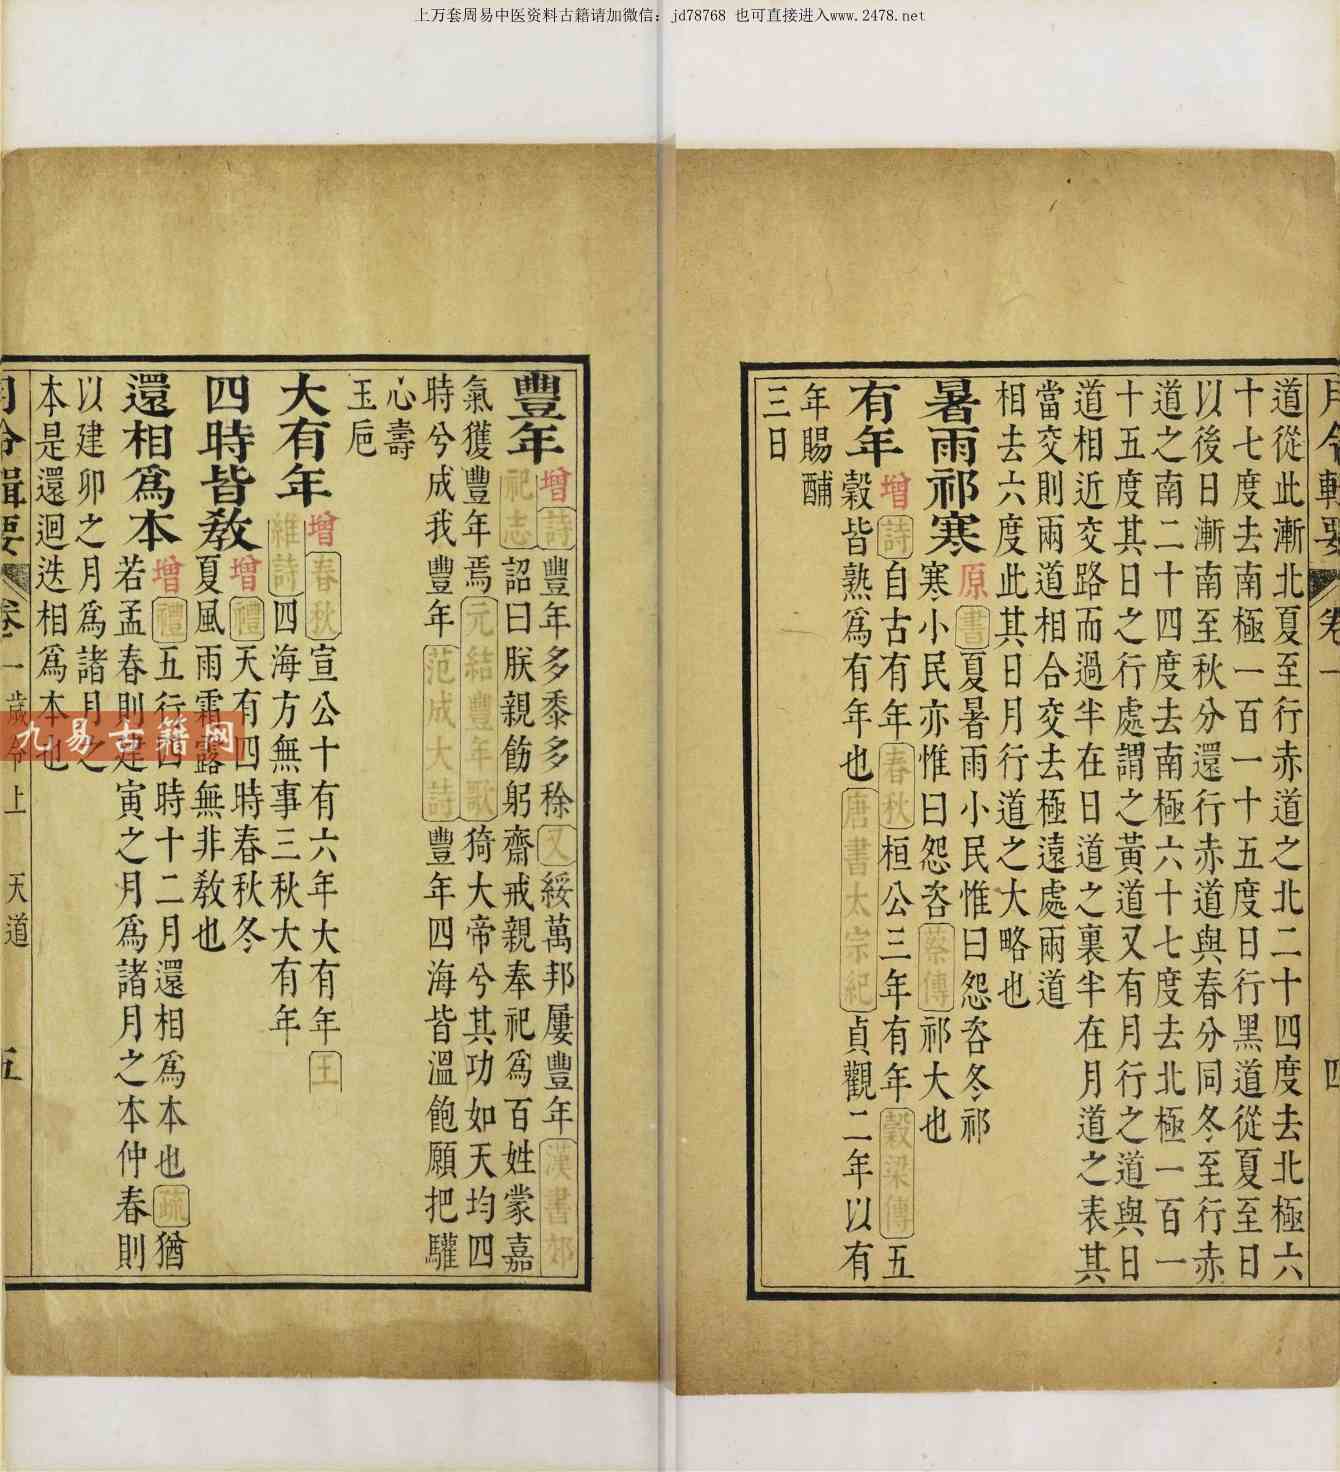 上万套周易中医资料古籍请加微信：jd78768 也可直接进入www.2478.net
月令輯要 卷一 四
道從此漸北夏至行赤道之北二十四度去北極六
十七度去南極一百一十五度日行黑道從夏至日
以後日漸南至秋分還行赤道與春分同冬至行赤
道之南二十四度去南極六十七度去北極一百一
十五度其日之行處謂之黃道又有月行之道與日
道相近交路而過半在日道之裏半在月道之表其
當交則兩道相合交去極遠處兩道
相去六度此其日月行道之大略也
暑雨祁寒 原 書 夏暑雨小民惟曰怨咨冬祁
寒小民亦惟曰怨咨 蔡傳 祁大也
有年 增 詩 自古有年 春秋 桓公三年有年 穀梁傳 五
穀皆熟爲有年也 唐書太宗紀 貞觀二年以有
年賜酺
三日
豐年 增 詩 豐年多黍多稌 又 綏萬邦屢豐年 漢書郊
祀志 詔曰朕親飭躬齋戒親奉祀爲百姓蒙嘉
氣獲豐年焉 元結豐年歌 猗大帝兮其功如天均四
時兮成我豐年 范成大詩 豐年四海皆溫飽願把驩
心壽
玉卮
大有年 增 春秋 宣公十有六年大有年 王
維詩 四海方無事三秋大有年
四時皆敎 增 禮 天有四時春秋冬
夏風雨霜露無非敎也
還相爲本 增 禮 五行四時十二月還相爲本也 疏 猶
若孟春則建寅之月爲諸月之本仲春則
以建卯之月爲諸月之
本是還迴迭相爲本也
月令輯要 卷一 歲令上 天道 五
九易古籍网